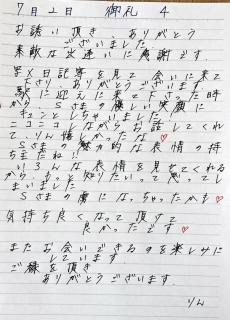 7月2日 御礼 4
お誘い頂き、ありがとう
ございました
素敵な出逢いに感謝です
写メ日記等を見て会いに来て
ださり、ありがとうございます
駅に迎えに来て下さった時
から Sさまの優しい笑顔に
キュンとしちゃいました!
ニコニコしながらお話してくれ
て、りん嬉しかったな♡
Sさまの魅力的な表情の持
ち主だね!!
いろんな表情を見せてくれる
から、もっと知りたいって思ってし
まいました
Sさまの虜になっちゃったかも♥
気持ち良くなって頂けて
良かったです♥
またお会いできるのを楽しみに
しています
ご縁を頂き
ありがとうございます
りん